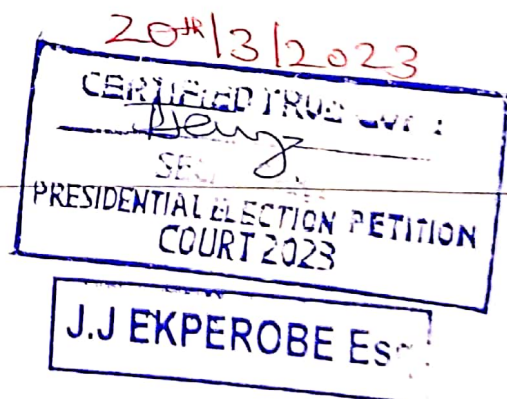 20th/3/2023
CERTIFIED TRUE
PRESIDENTIAL ELECTION PETITION
COURT 2023
J.J EKPEROBE Es